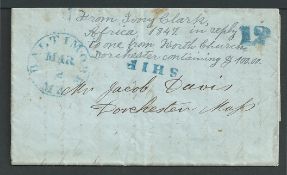 From Simy Clark,
Africa 1847 in reply
to one from North Church
Dorchester containing $100.00.
12
BALTIMORE
MAR
2
Md.
SHIP
Mr Jacob Davis
Dorchester Mass